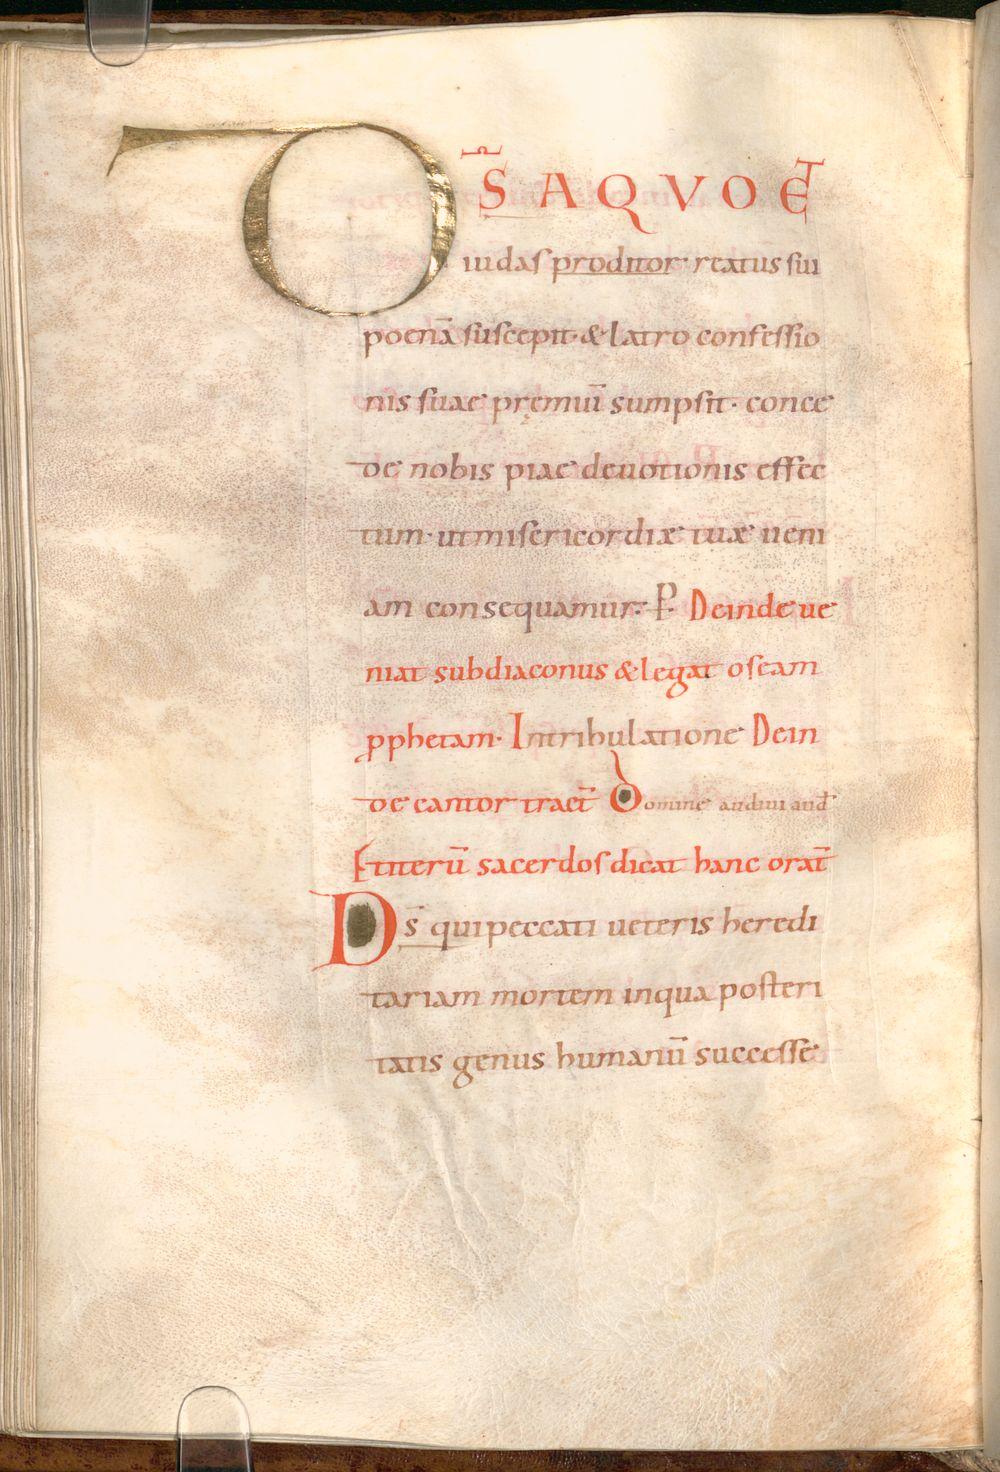 D̄S A QUO ET̄
iudas proditor· reatus sui
poenā suscepit· & latro confessio
nis suae pręmiū sumpsit· conce
de nobis piae deuotionis effec
tum· ut misericordiæ tuæ ueni
am consequamur· P̶ Deinde ue
niat subdiaconus & legat oseam
ꝓphetam· In tribulatione Dein
de cantor tract̄ Domine audiui aud̄
Et iterū sacerdos dicat hanc orat̄
Ds̄ qui peccati ueteris heredi
tariam mortem in qua posteri
tatis genus humanū successe